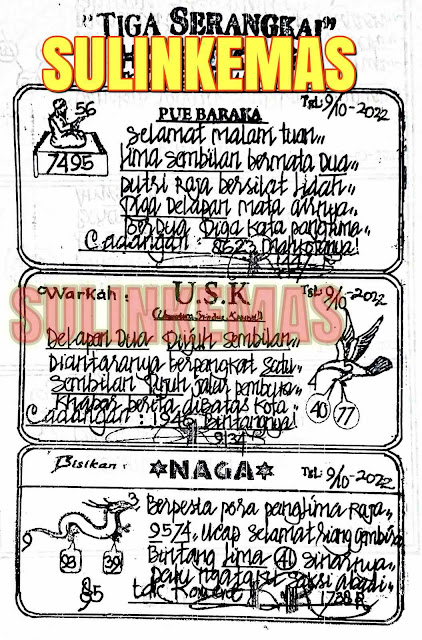 "TIGA SERANGKAI"
SULINKEMAS
PUE BARAKA
TGL: 9/10-2022
56
7495
Selamat malam tuan,,
lima sembilan bermata dua,,
putri raja bersilat lidah,,
Tiga Delapan mata airnya,,
Berdua Tiga kata panglima,,
Cadangan: 8623 Mahkotanya!
Warkah:
U.S.K
TGL: 9/10-2022
SULINKEMAS
Delapan Dua Tujuh Sembilan,,
Diantaranya berpangkat satu,,
Sembilan Tujuh jalur pembuka,,
Khabar berita dibatas kota,,
Cadangan: 1946 Bintangnya!
4
40
77
Bisikan:
NAGA
TGL: 9/10-2022
3
9
93
39
Berpesta pora panglima Raja,,
9574, Ucap selamat riang gembira
Bintang lima 41 sinarnya,,
abadi,,